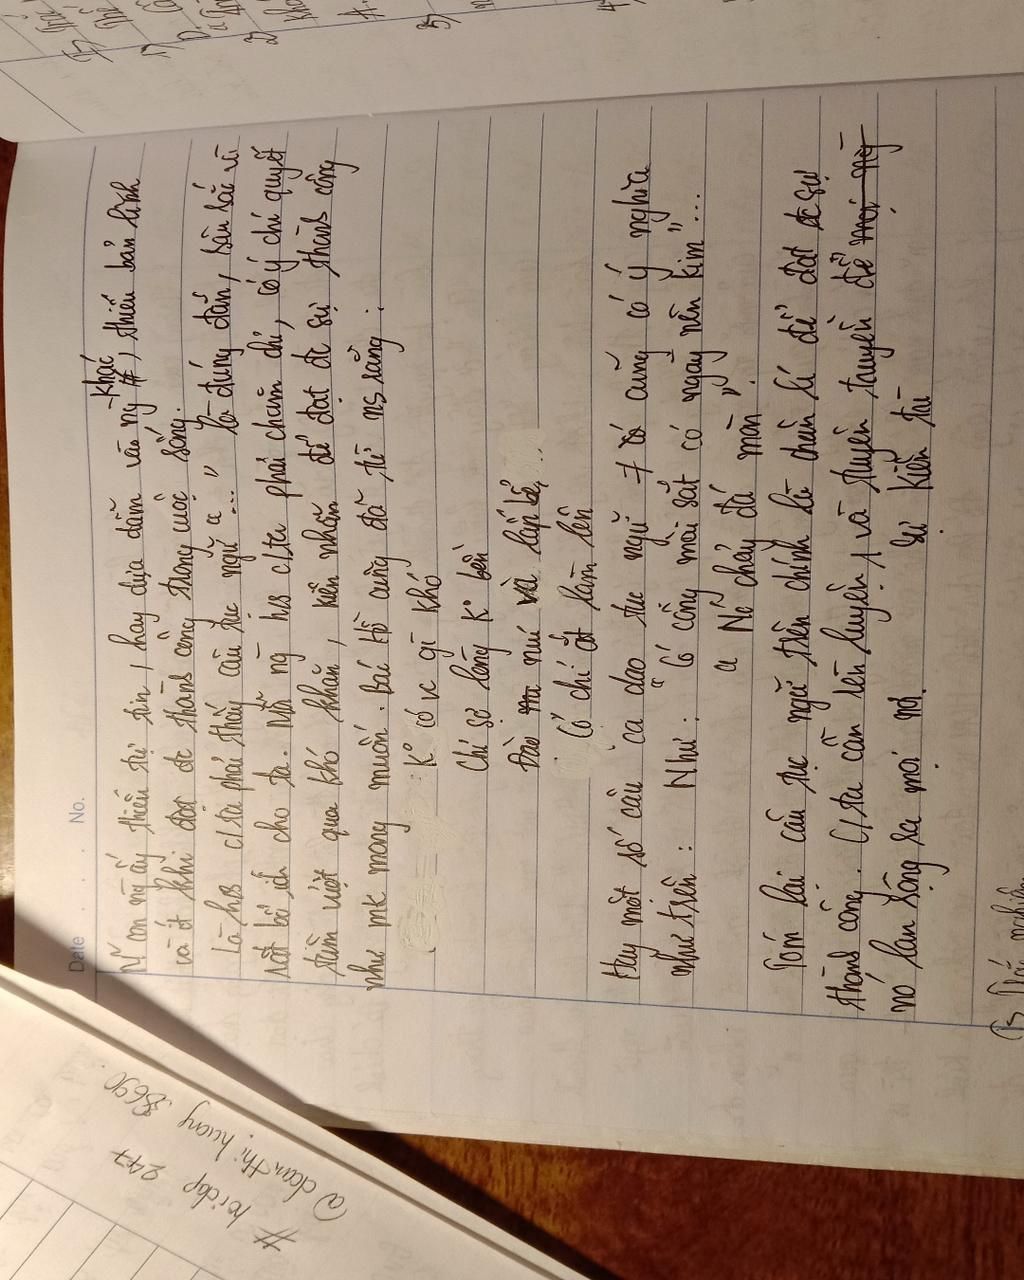 Date No.
N~ con ng ấy thiếu tự tin, hay dựa dẫm vào ng # khác, thiếu bản lĩnh
và ít khi đạt đc thành công trong cuộc sống.
Là hs c/ta phải thấy câu tục ngữ "..." là đúng đắn, sâu sắc và
rất bổ ích cho ta. Mỗi ng hs c/ta phải chăm chỉ, có ý chí quyết
tâm vượt qua khó khăn, kiên nhẫn để đạt đc sự thành công
như mk mong muốn. Bác Hồ cũng đã từ ns rằng:
K° có vc gì khó
Chỉ sợ lòng k° bền
Đào núi và lấp bể,
Có chí ắt làm lên
Hay một số câu ca dao tục ngữ ≠ có cũng có ý nghĩa
như trên: Như: "Có công mài sắt có ngày nên kim"...
"Nc chảy đá mòn"
Tóm lại câu tục ngữ trên chính là chân lí để đạt đc sự
thành công. C/ta cần rèn luyện, và tuyên truyền để mọi ng
nó lan rộng ra mọi nơi.
B, Trắc nghiệm
# hoidap 247
@doanthihuong38690.